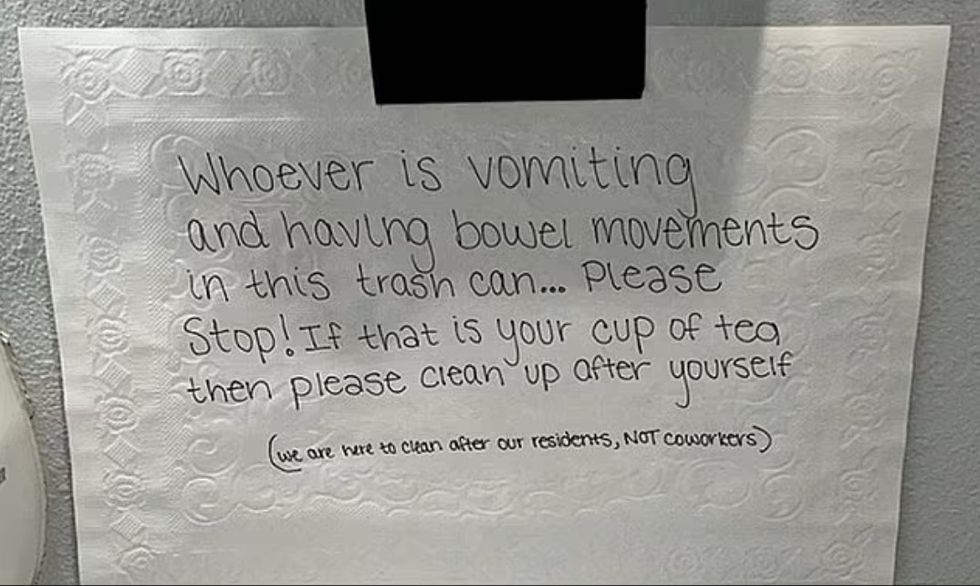 Whoever is vomiting
and having bowel movements
in this trash can... Please
Stop! If that is your cup of tea
then please clean up after yourself
(we are here to clean after our residents, NOT coworkers)